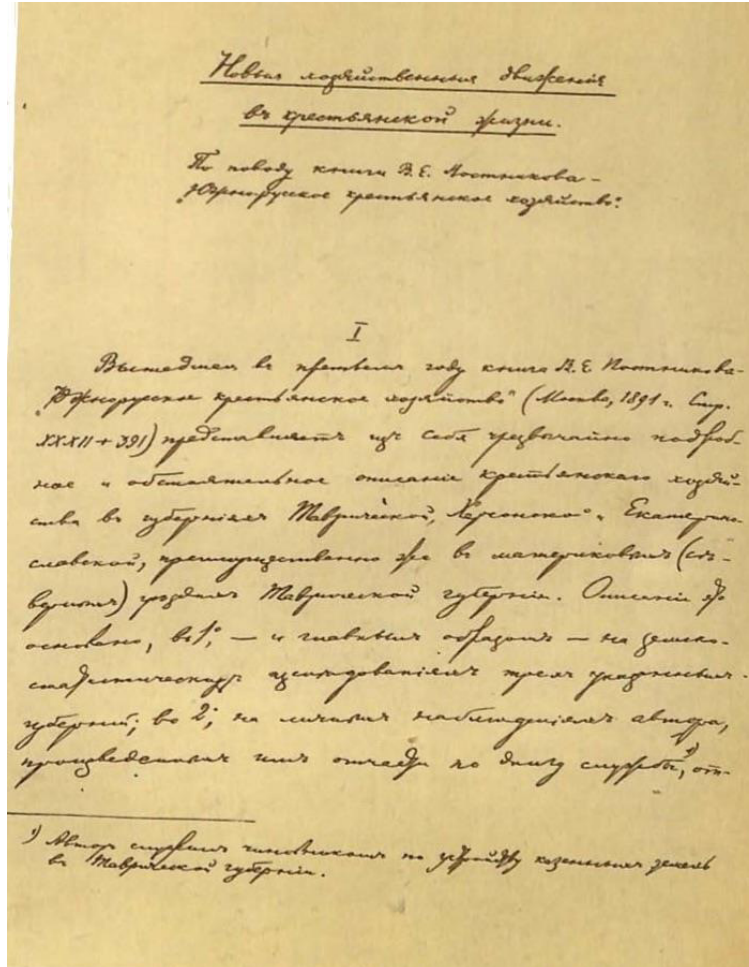 Новыя хозяйственныя движенія
въ крестьянской жизни.
По поводу книги В. Е. Постникова –
„Южно-русское крестьянское хозяйство".
I
Вышедшая въ третьемъ году книга В. Е. Постникова –
„Южнорусское крестьянское хозяйство" (Москва, 1891 г. Стр.
XXXII + 391) представляетъ изъ себя чрезвычайно подроб-
ное и обстоятельное описаніе крестьянскаго хозяй-
ства въ губерніяхъ Таврической, Херсонской и Екатерино-
славской, преимущественно же въ материковыхъ (сѣ-
верныхъ) уѣздахъ Таврической губерніи. Описаніе это
основано, въ 1., – и главнымъ образомъ – на земско-
статистическихъ изслѣдованіяхъ трехъ указанныхъ
губерній; во 2., на личныхъ наблюденіяхъ автора,
произведенныхъ имъ отчасти по долгу службы 1), от-
1) Авторъ служилъ чиновникомъ по устройству казенныхъ земель
въ Таврической губерніи.